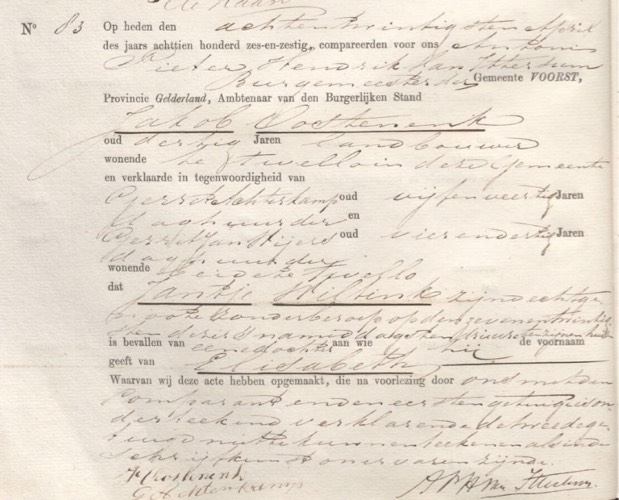 No 83 Op heden den achtentwintigsten April
des jaars achttien honderd zes-en-zestig, compareerden voor ons Antonie
Pieter Hendrik van Ittersum
Burgemeester der Gemeente VOORST,
Provincie Gelderland, Ambtenaar van den Burgerlijken Stand
Jakob Oosthenenk
oud dertig Jaren landbouwer
wonende te Twello in deze Gemeente
en verklaarde in tegenwoordigheid van
Gerrit Achterkamp oud vijfenveertig Jaren
daghuurder en
Gerrit Jan Nijers oud vierendertig Jaren
daghuurder
wonende beide te Twello
dat Jantje Wiltink zijne echtge
noote zonder beroep op den zevenentwintig
sten dezer s namiddags ten ure ten zijnen huize
is bevallen van eene dochter aan wie hij de voornaam
geeft van Elisabeth
Waarvan wij deze acte hebben opgemaakt, die na voorlezing door ons met den
Comparant en den eersten getuige is on
derteekend verklarende de tweede ge
tuige niet te kunnen teekenen als in de
schrijfkunst onervaren zijnde.
G Achterkamp